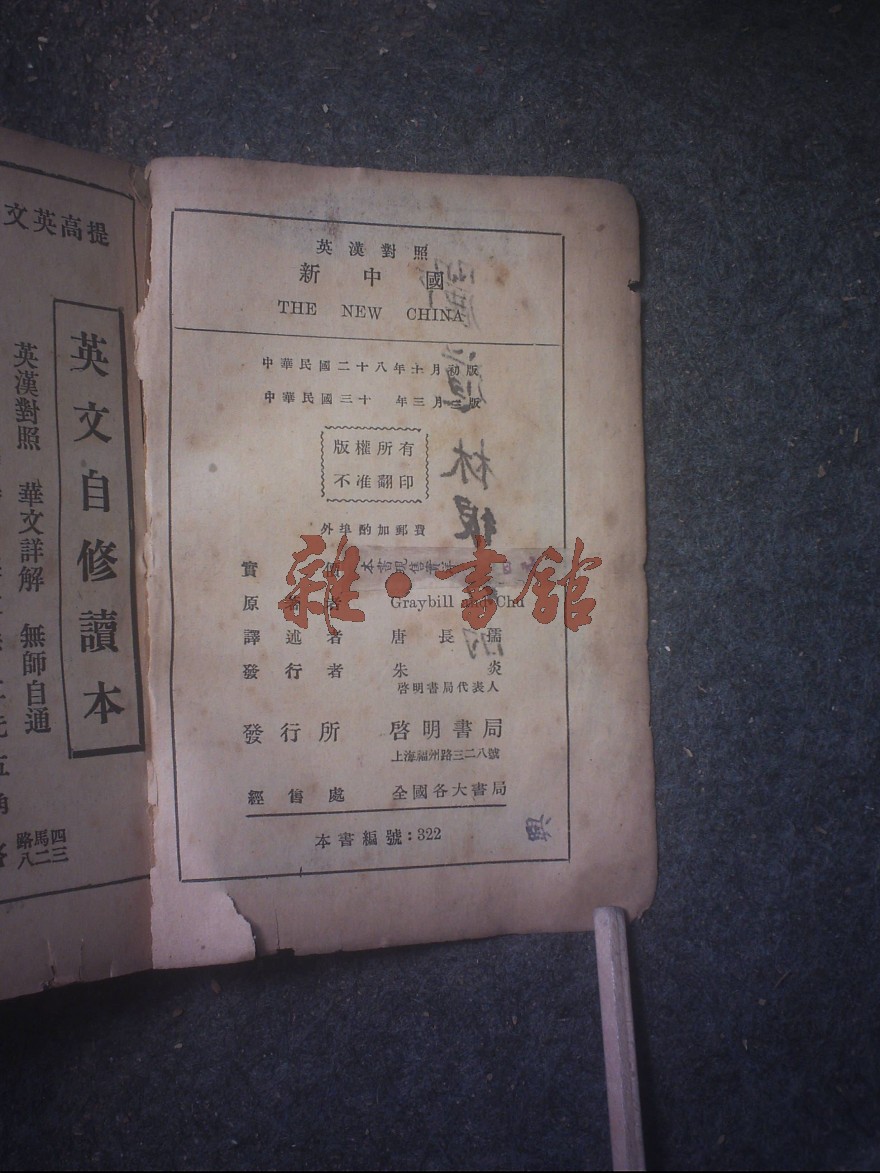 英漢對照
新中國
THE NEW CHINA
中華民國二十八年十月初版
中華民國三十 年三月三版
版權所有
不准翻印
外埠酌加郵費
實價
原著者 Graybill and Chu
譯述者 唐長孺
發行者 朱炎
啓明書局代表人
發行所 啓明書局
上海福州路三二八號
經售處 全國各大書局
本書編號:322
雜·書館
提高英文
英文自修讀本
英漢對照 華文詳解 無師自通
四馬路
三二八